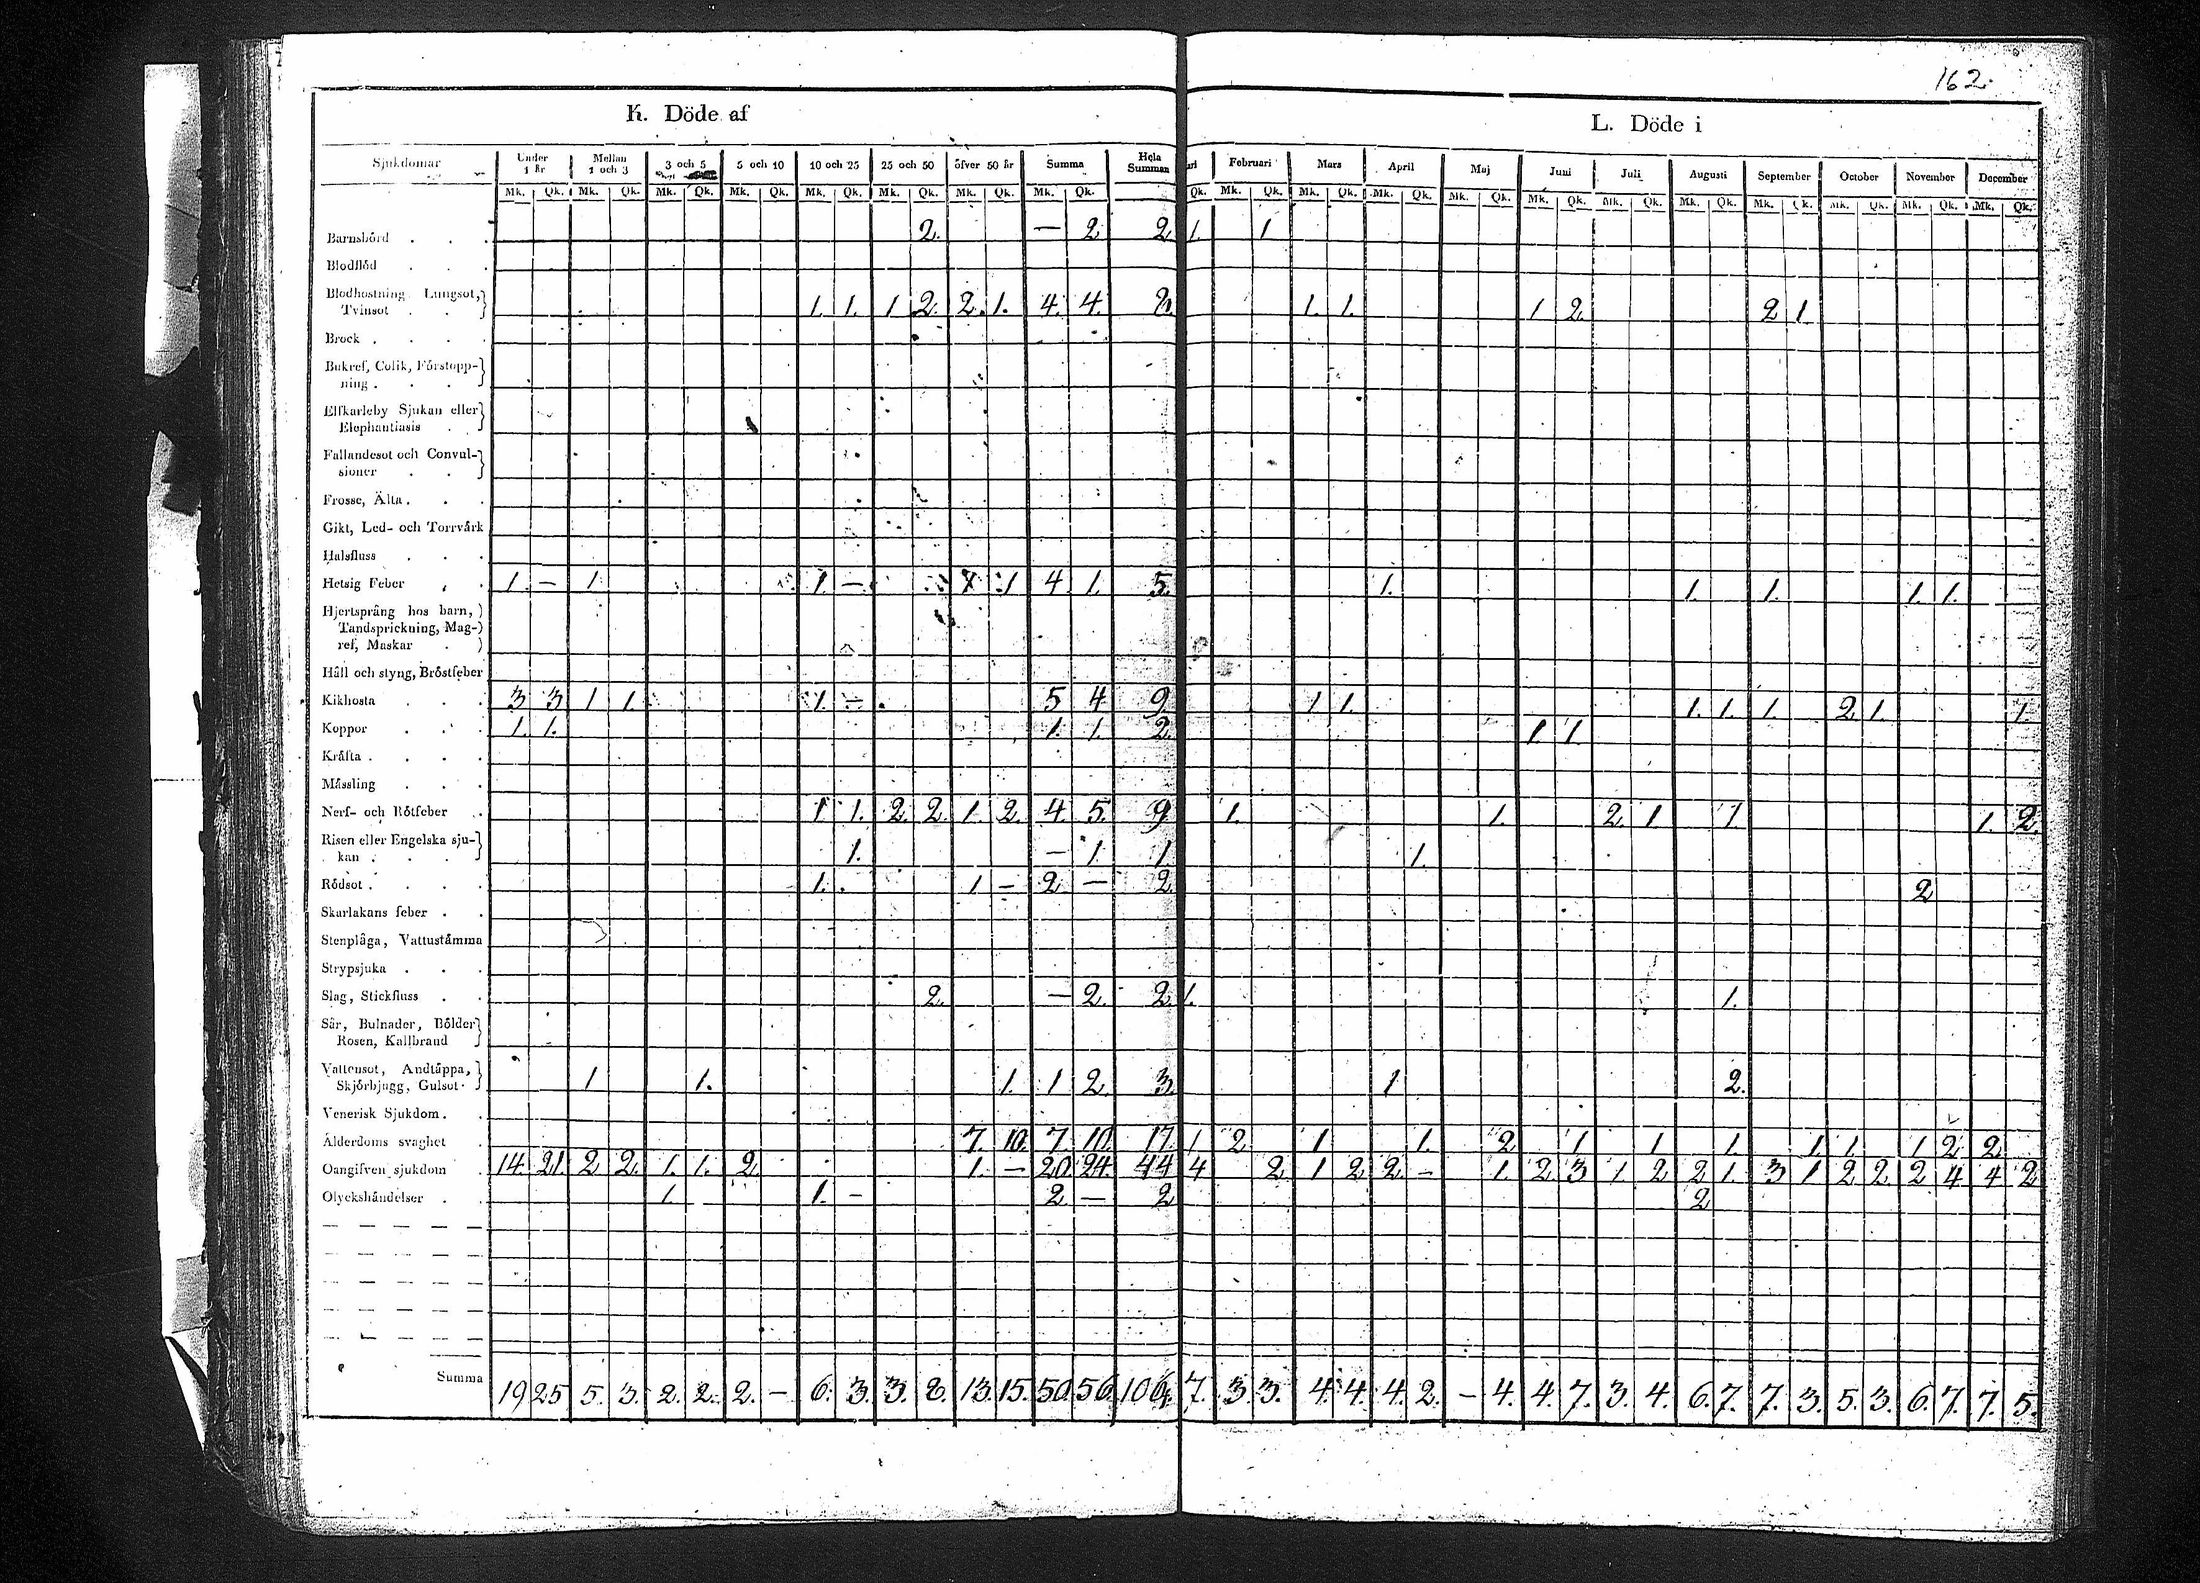 162.
K. Döde af
L. Döde i
Sjukdomar Under 1 år Mellan 1 och 3 3 och 5 5 och 10 10 och 25 25 och 50 öfver 50 år Summa Hela Summan ari Februari Mars April Maj Juni Juli Augusti September October November December
Mk. Qk. Mk. Qk. Mk. Qk. Mk. Qk. Mk. Qk. Mk. Qk. Mk. Qk. Mk. Qk. Qk. Mk. Qk. Mk. Qk. Mk. Qk. Mk. Qk. Mk. Qk. Mk. Qk. Mk. Qk. Mk. Qk. Mk. Qk. Mk. Qk. Mk. Qk.
Barnsbörd . . . 2. — 2 2 1. 1
Blodflöd . . .
Blodhostning Lungsot,
Tvinsot . . . 1. 1. 1 2. 2. 1. 4. 4. 1. 1. 1 2. 2 1.
Brock . . . .
Bukref, Colik, Förstopp-
ning . . . .
Elfkarleby Sjukan eller
Elephantiasis .
Fallandesot och Convul-
sioner . .
Frosse, Älta . . .
Gikt, Led- och Torrvärk
Halsfluss . . .
Hetsig Feber . . 1. — 1 1 — 1 4 1. 5. 1. 1. 1. 1. 1.
Hjertsprång hos barn,
Tandsprickning, Mag-
ref, Maskar .
Håll och styng, Bröstfeber
Kikhosta . . . 3 3 1 1. 1. — 5 4 9 1 1. 1. 1. 1. 2 1. 1.
Koppor . . . 1. 1. 1. 1. 2. 1. 1.
Kräfta . . . .
Mässling . . .
Nerf- och Rötfeber . 1 1. 2. 2. 1. 2. 4 5. 9. 1. 1. 2. 1. 1. 1. 2.
Risen eller Engelska sju-
kan . . . . 1. — 1. 1. 1.
Rödsot . . . . 1. 1 — 2. — 2. 2
Skarlakans feber . .
Stenplåga, Vattustämma
Strypsjuka . . .
Slag, Stickfluss . . 2. — 2. 2 1. 1.
Sår, Bulnader, Bölder
Rosen, Kallbrand
Vattensot, Andtäppa,
Skjörbjugg, Gulsot 1 1. 1. 1 2. 3. 1 2.
Venerisk Sjukdom . .
Ålderdoms svaghet . 7. 10. 7. 10. 17. 1 2 1 1. 2 1 1 1. 1 1. 1 2 2
Oangifven sjukdom . 14. 21. 2 2. 1. 1. 2. 1. — 20. 24. 44 4 2 1 2 2. — 1. 2. 3 1 2 2 1. 3 1 2 2. 2 4 4 2
Olyckshändelser . . 1. 1. — 2 — 2 2
Summa 19 25 5. 3. 2. 2. 2. — 6. 3. 3. 8. 13. 15. 50. 56. 106. 7. 3. 3. 4. 4. 4. 2. — 4. 4. 7. 3. 4. 6. 7. 7. 3. 5. 3. 6. 7. 7. 5.